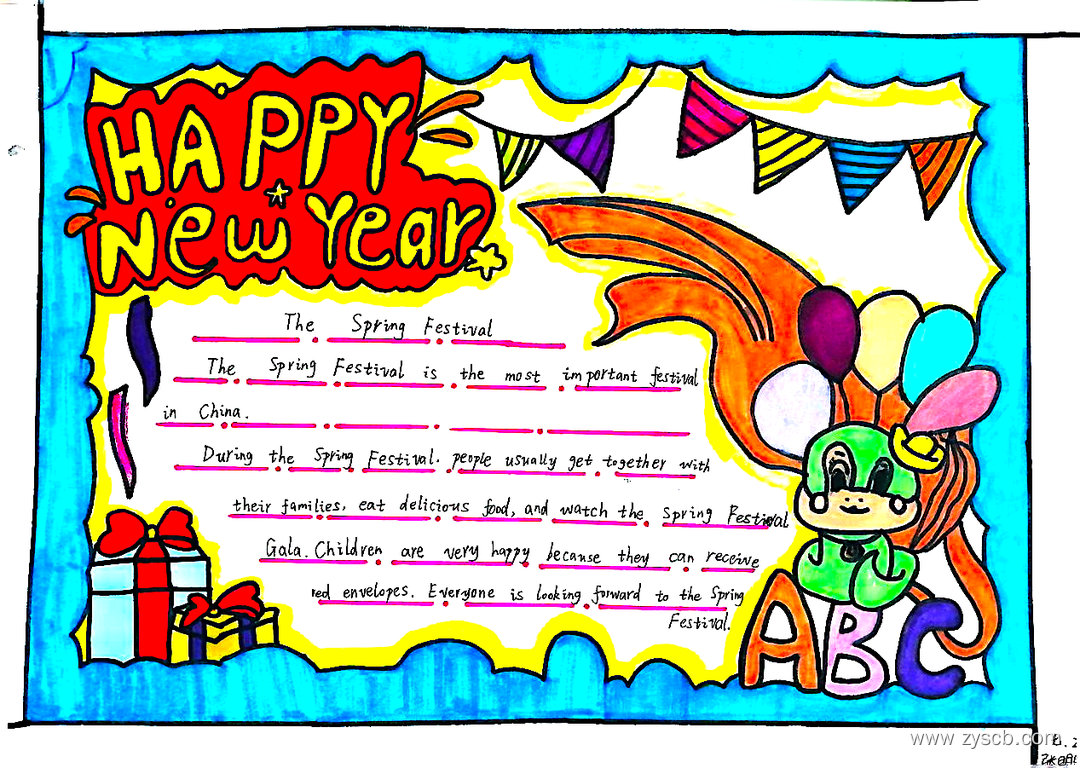 HAPPY
New Year
The Spring Festival
The Spring Festival is the most important festival
in China.
During the Spring Festival. people usually get together with
their families, eat delicious food, and watch the Spring Festival
Gala. Children are very happy because they can receive
red envelopes. Everyone is looking forward to the Spring
Festival.
ABC
www.zyscb.com